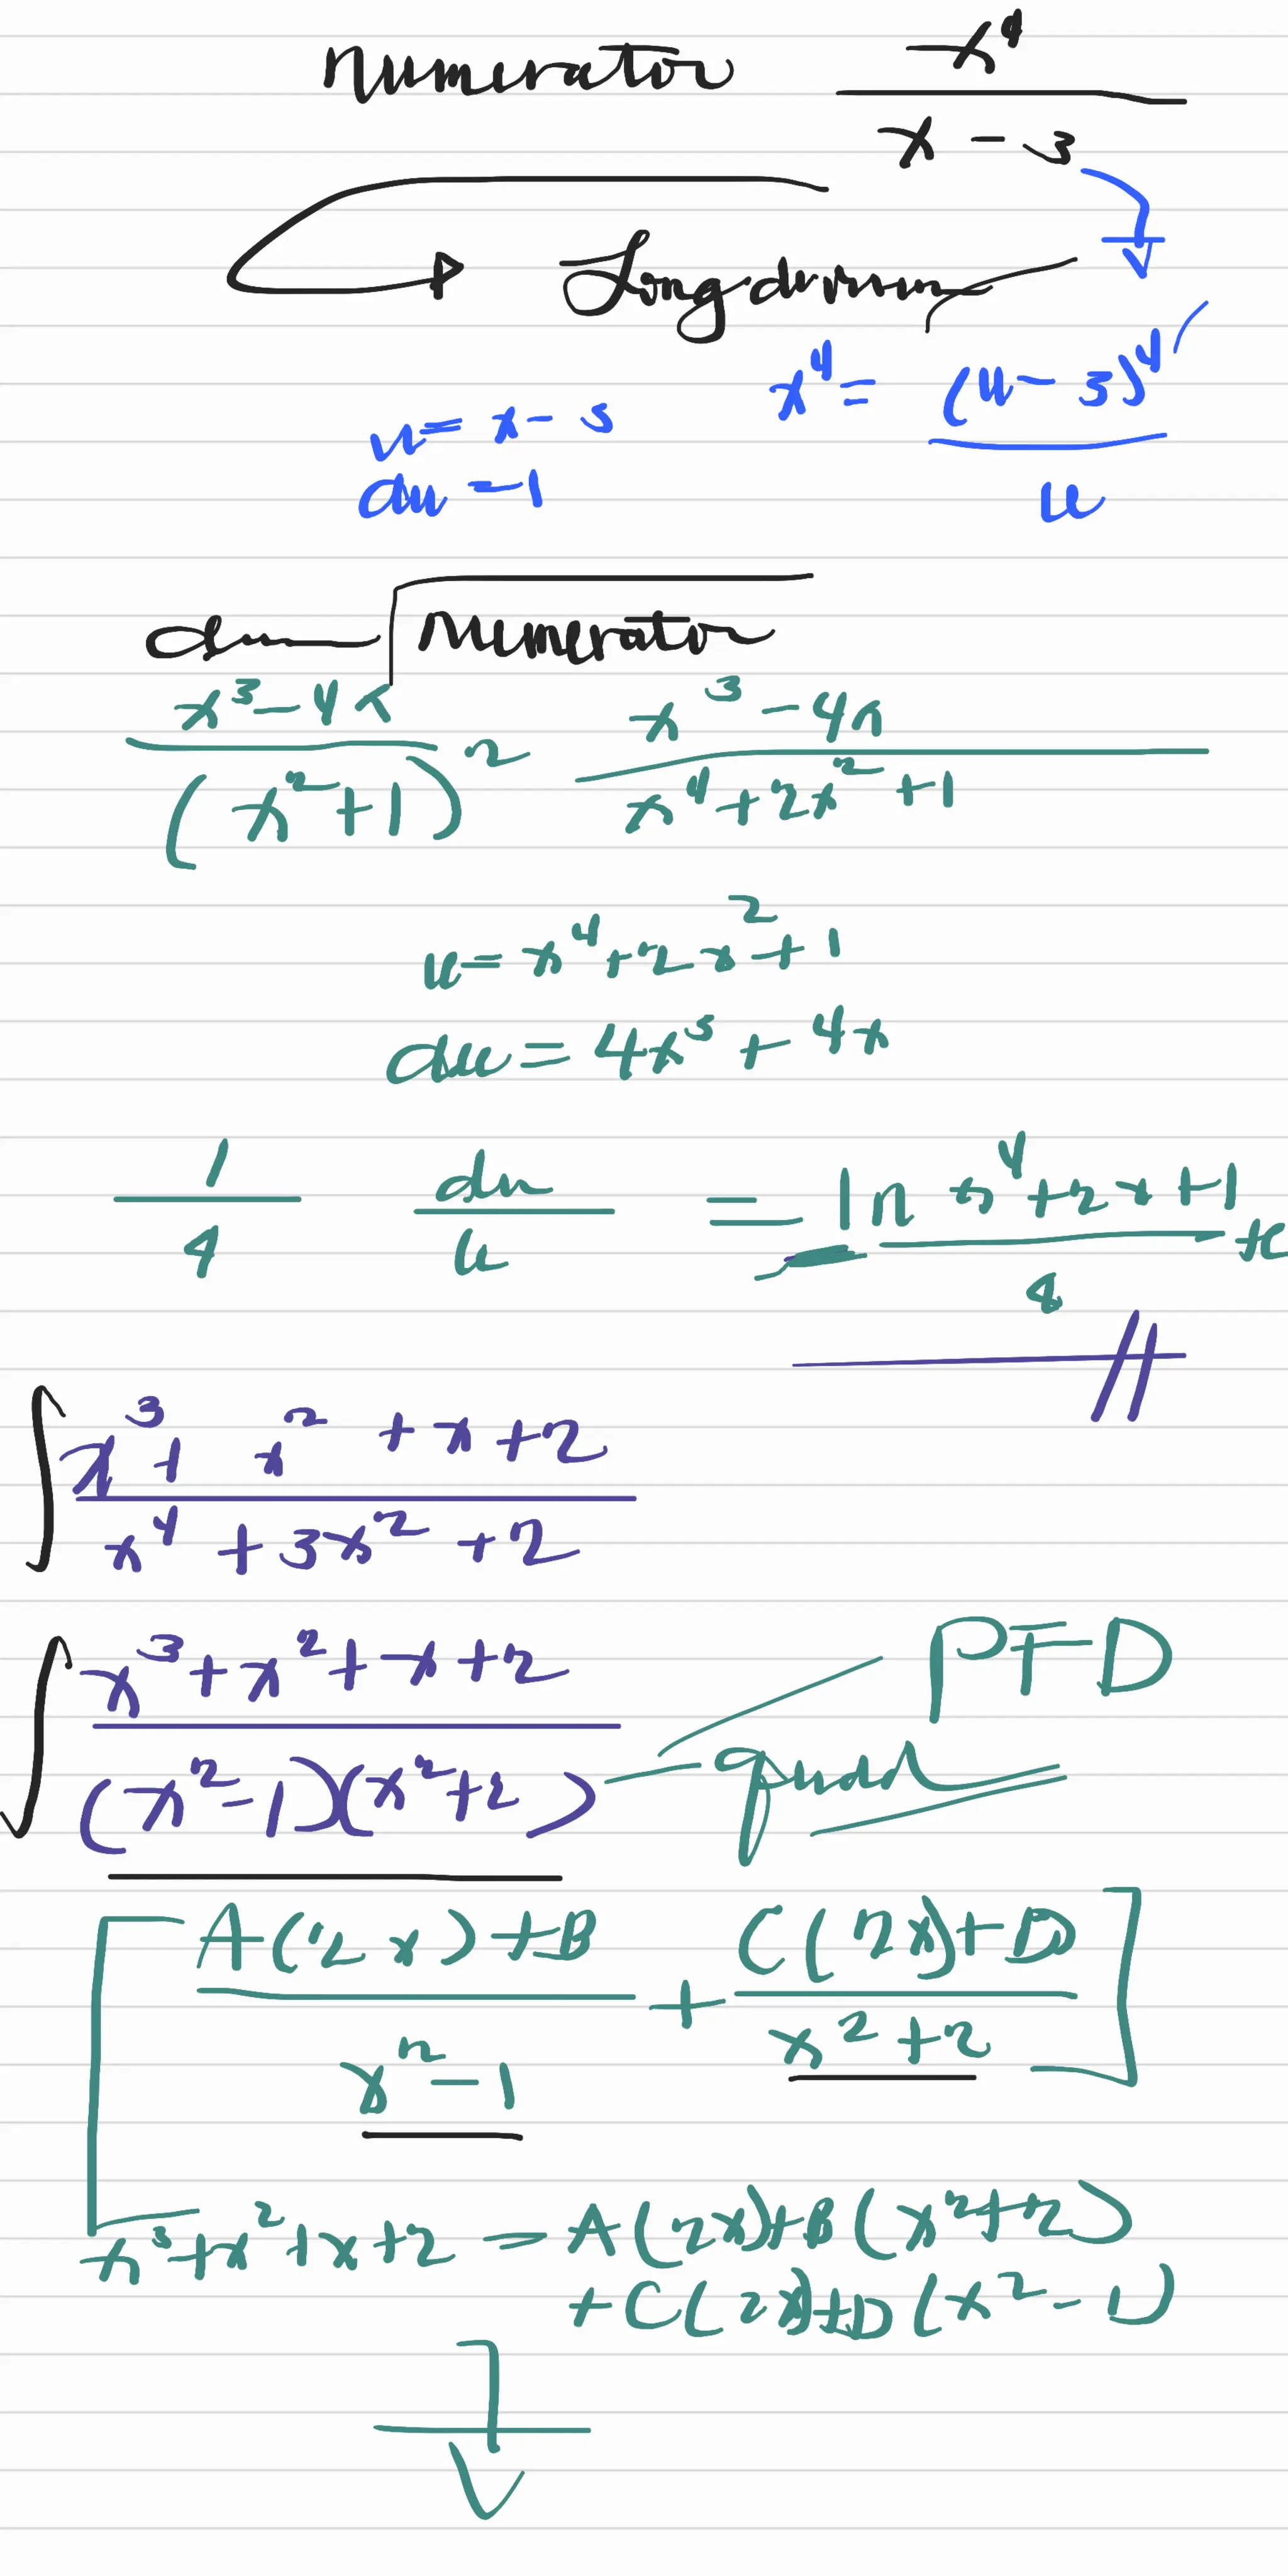 Numerator x⁴/(x - 3)
Long division
x⁴ = (u - 3)⁴/u
u = x - 3
du = 1
Numerator
(x³ - 4x)/(x² + 1)² (x³ - 4x)/(x⁴ + 2x² + 1)
u = x⁴ + 2x² + 1
du = 4x³ + 4x
1/4 du/u = ln x⁴ + 2x + 1/4 + c
∫ (x³ + x² + x + 2)/(x⁴ + 3x² + 2)
∫ (x³ + x² + x + 2)/((x² - 1)(x² + 2)) PFD
quad
[(A(2x) + B)/(x² - 1) + (C(2x) + D)/(x² + 2)]
x³ + x² + x + 2 = A(2x) + B(x² + 2)
+ C(2x) + D(x² - 1)